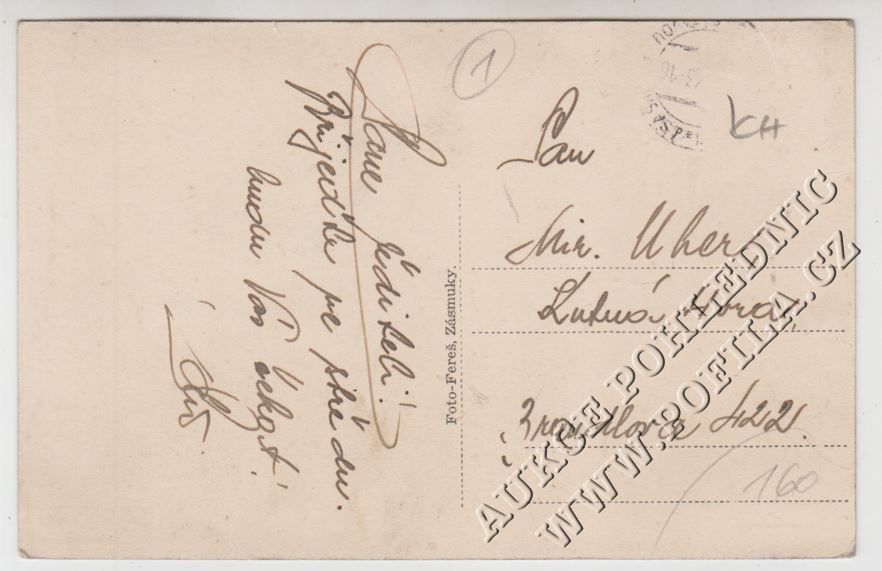 Pane řediteli!
Přijeďte ve středu.
budu Vás čekat!
Foto-Fereš, Zásmuky.
1
KH
Pan
Mir. Uher
Kutná Hora
422
160
AUKCE POHLEDNIC
WWW.POFILA.CZ